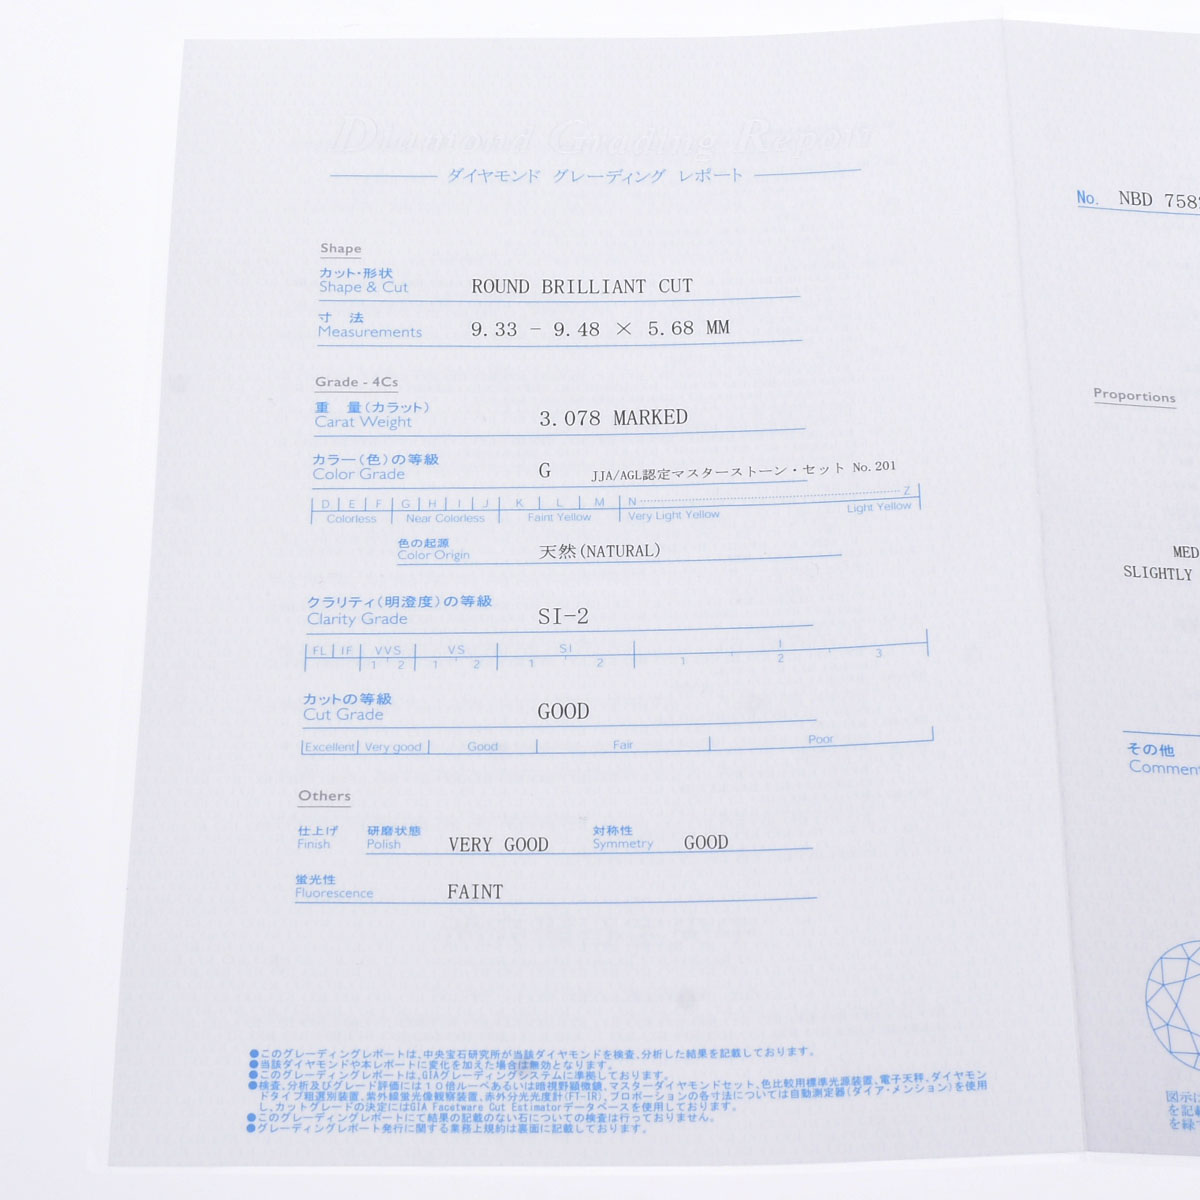 Diamond Grading Report
ダイヤモンド グレーディング レポート
Shape
カット・形状
Shape & Cut ROUND BRILLIANT CUT
寸 法
Measurements 9.33 - 9.48 × 5.68 MM
Grade - 4Cs
重 量(カラット)
Carat Weight 3.078 MARKED
カラー(色)の等級
Color Grade G JJA/AGL認定マスターストーン・セット No.201
D E F G H I J K L M N Z
Colorless Near Colorless Faint Yellow Very Light Yellow Light Yellow
色の起源
Color Origin 天然(NATURAL)
クラリティ(明澄度)の等級
Clarity Grade SI-2
FL IF VVS VS SI I
1 2 1 2 1 2 1 2 3
カットの等級
Cut Grade GOOD
Excellent Very good Good Fair Poor
Others
仕上げ 研磨状態 対称性
Finish Polish VERY GOOD Symmetry GOOD
蛍光性
Fluorescence FAINT
●このグレーディングレポートは、中央宝石研究所が当該ダイヤモンドを検査、分析した結果を記載しております。
●当該ダイヤモンドや本レポートに変化を加えた場合は無効となります。
●このグレーディングレポートは、GIAグレーディングシステムに準拠しております。
●検査、分析及びグレード評価には10倍ルーペあるいは暗視野顕微鏡、マスターダイヤモンドセット、色比較用標準光源装置、電子天秤、ダイヤモン
ドタイプ粗選別装置、紫外線蛍光像観察装置、赤外分光光度計(FT-IR)、プロポーションの各寸法については自動測定器(ダイア・メンション)を使用
し、カットグレードの決定にはGIA Facetware Cut Estimatorデータベースを使用しております。
●このグレーディングレポートにて結果の記載のない石についての検査は行っておりません。
●グレーディングレポート発行に関する業務上規約は裏面に記載しております。
No. NBD 758
Proportions
MED
SLIGHTLY
その他
Commen
図示に
を記載
を緑で